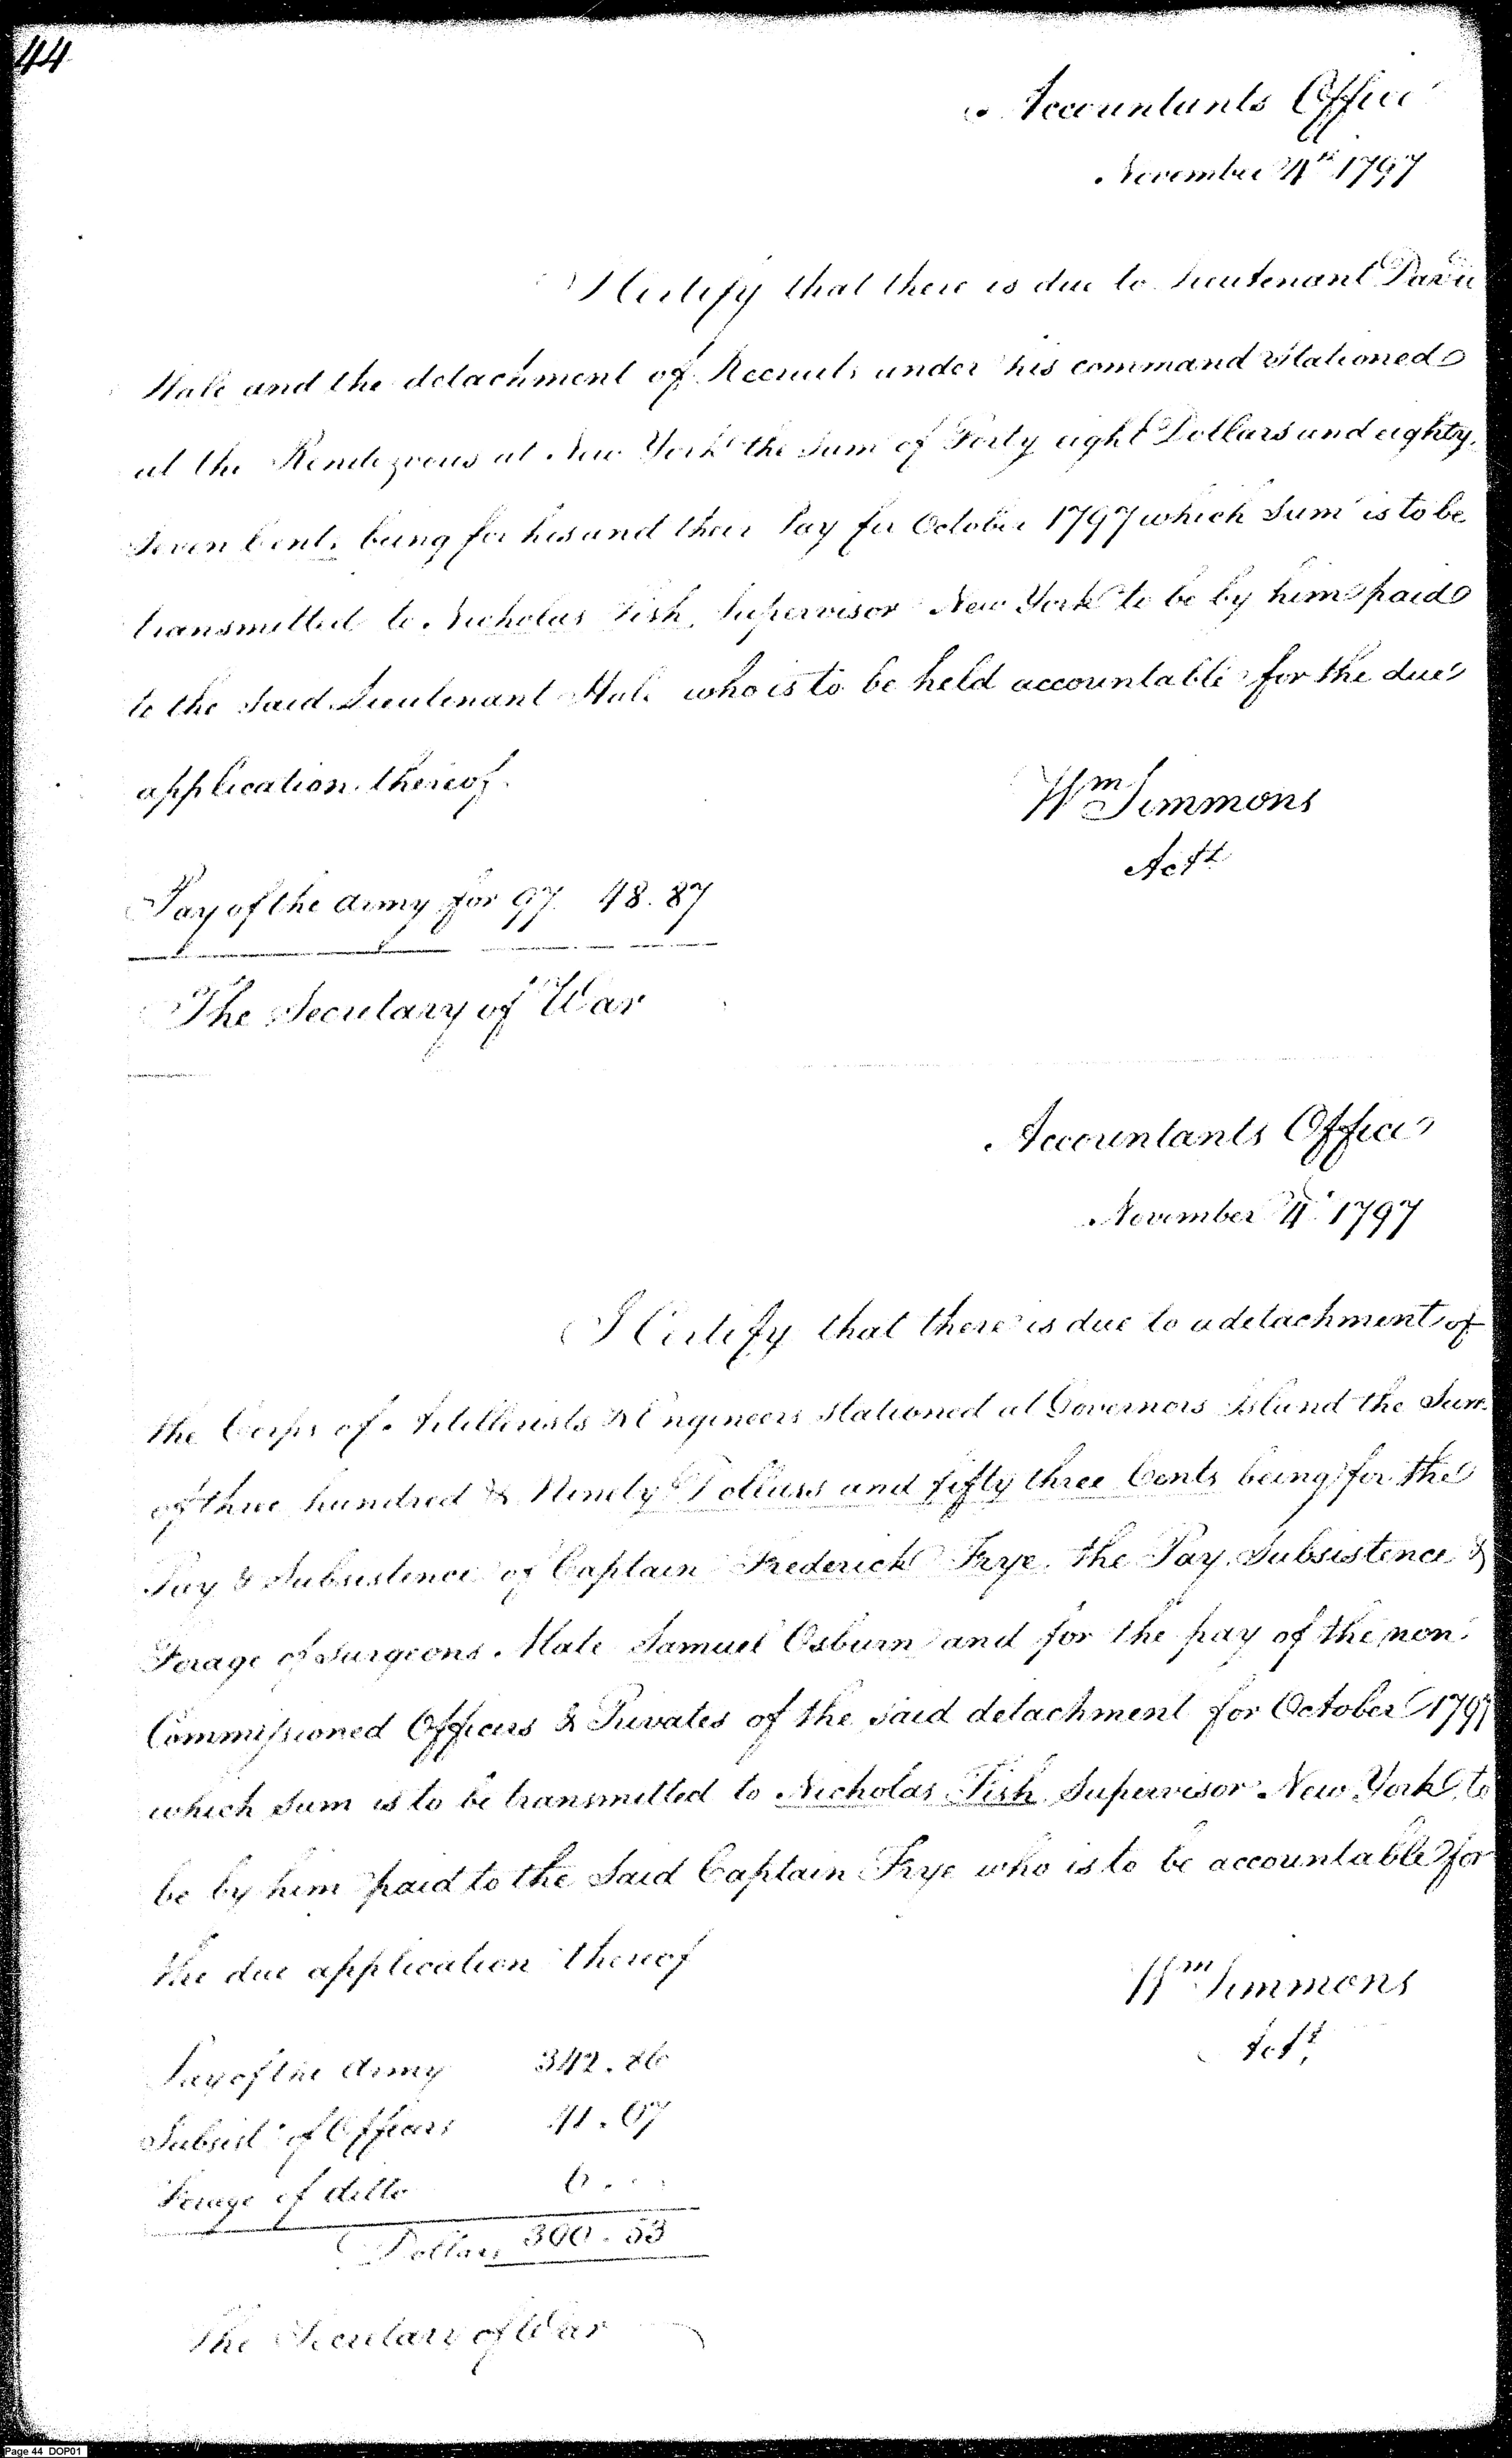 44
Accountants Office
November 4th 1797
I Certify that there is due to Lieutenant David
Hale and the detachment of Recruits under his command stationed
at the Rendezvous at New York the sum of Forty eight Dollars and eighty
seven Cents being for his and their Pay for October 1797 which Sum is to be
transmitted to Nicholas Fish, Supervisor New York to be by him paid
to the said Lieutenant Hale who is to be held accountable for the due
application thereof.
Wm Simmons
Actt
Pay of the army for 97. 48.87
The Secretary of War
Accountants Office
November 4th 1797
I Certify that there is due to a detachment of
the Corps of Artillerists & Engineers stationed at Governors Island the Sum
of three hundred & Ninety Dollars and fifty three Cents being for the
Pay & Subsistence of Captain Frederick Frye, the Pay, Subsistence &
Forage of Surgeons Mate Samuel Osburn and for the pay of the non
Commissioned Officers & Privates of the said detachment for October 1797
which sum is to be transmitted to Nicholas Fish Supervisor New York to
be by him paid to the Said Captain Frye who is to be accountable for
the due application thereof
Wm Simmons
Actt
Pay of the Army 342.86
Subsist. of Officers 41.67
Forage of ditto 6...
Dollars 390.53
The Secretary of War
Page 44 DOP01